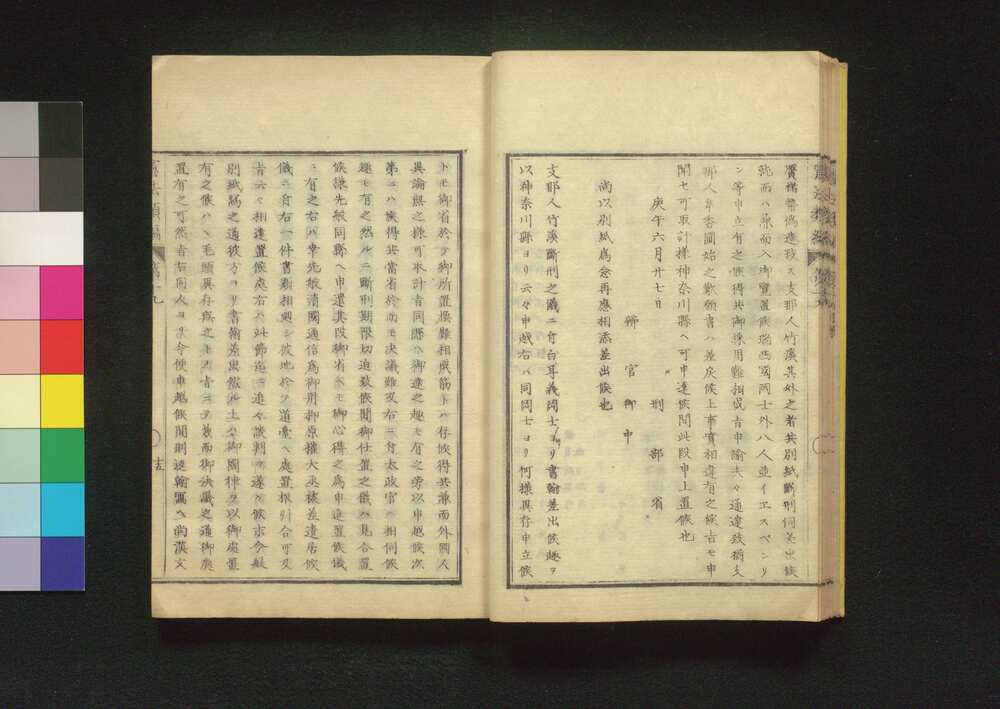 贋楮幣偽造致ス支那人竹渓其外之者共別紙断刑伺差出候
処西ハ兼而入御覧置候瑞西国岡士外八人連イエスペンリ
ン等申立有之候得共御採用難相成旨申諭夫々通達致猶支
那人牟杏圃始之歎願書ハ差戻候上事実相違有之候ハモ申
聞セ可取計様神奈川縣ヘ可申達候間此段申上置候也
庚午六月廿七日 刑部省
辨官御中
尚以別紙為念再應相添差出候也
支那人竹渓断刑之儀ニ付白耳義岡士ヨリ書翰差出候趣ヲ
以神奈川縣ヨリ云々申越右ハ同岡士ヨリ何様異存申立候
トモ御省於テ御所置擽難相成筋トハ存候得共兼而外國人
異論無之様可取計旨同縣ヘ御達之趣モ有之旁以申越候次
第ニハ候得共當省於而モ決議難致右ニ付太政官ヘ相伺候
趣モ有之然ルニ断刑期限切迫致候間御仕置之儀ハ見合置
候様先般同縣ヘ申遣其段御省ヘモ御心得之為申進置候儀
ニ有之右ハ幸先般清國通信為御用抑原權大丞棟差遣居候
儀ニ付右一件書類相廻シ彼地於テ道臺ヘ處置振引合可又
者云々相達置候處右ハ此節迄ニ追々談判ヲ遂ケ候末今般
別紙寫之通彼方ヨリ書翰差出候ハ上ハ御國律ヲ以御處置
有之候ハヽ毛頭異存無之モノニ付兼而御決議之通御處
置有之可然旨右同人ヨリ今便申越候間則速翰寫ヘ尚漢文
憲法類編 第九
十五